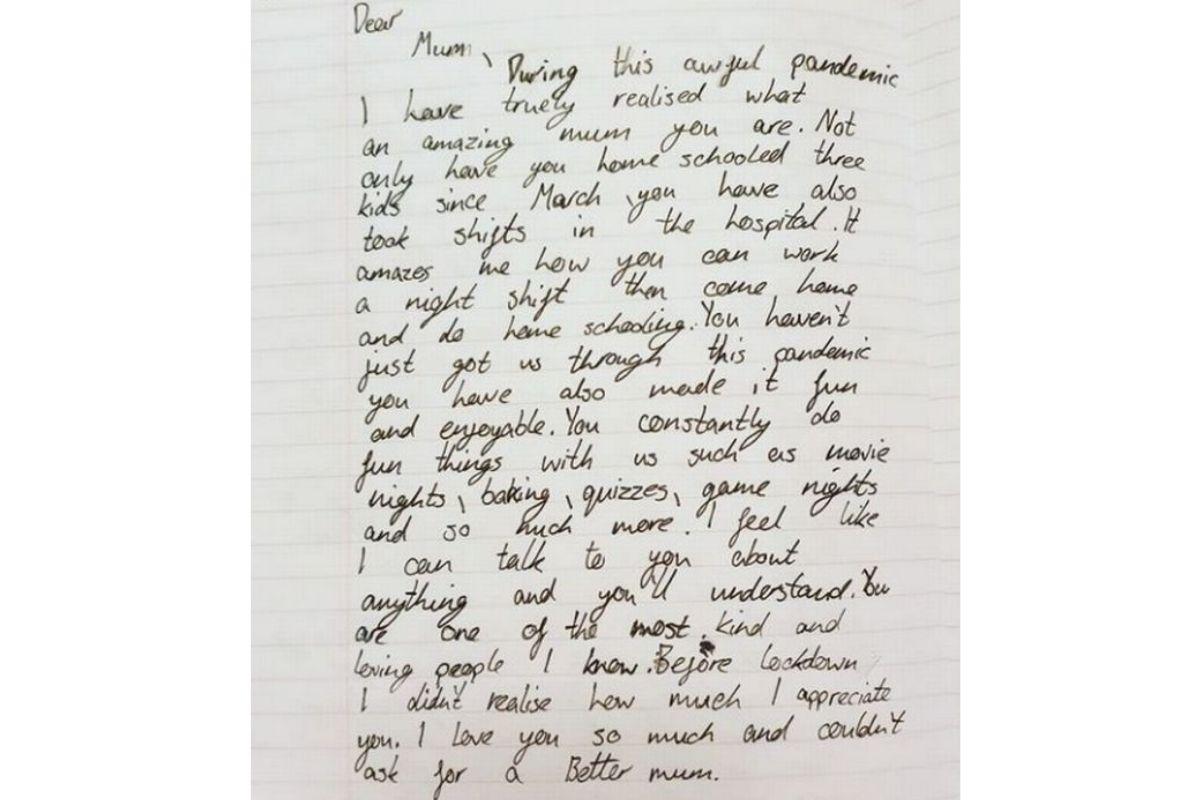 Dear
Mum, During this awful pandemic
I have truely realised what
an amazing mum you are. Not
only have you home schooled three
kids since March, you have also
took shifts in the hospital. It
amazes me how you can work
a night shift then come home
and do home schooling. You haven't
just got us through this pandemic
you have also made it fun
and enjoyable. You constantly do
fun things with us such as movie
nights, baking, quizzes, game nights
and so much more. I feel like
I can talk to you about
anything and you'll understand. You
are one of the most kind and
loving people I know. Before lockdown
I didn't realise how much I appreciate
you. I love you so much and couldn't
ask for a Better mum.